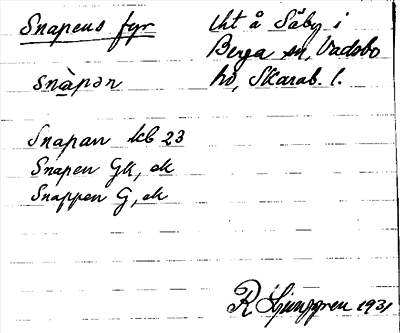 Snapens fyr
snàpən
Snapan kb 23
Snapen GK, ek
Snappen G, ek
tht å Säby i
Berga sn, Vadsbo
hd, Skarab. l.
R Ljunggren 1931